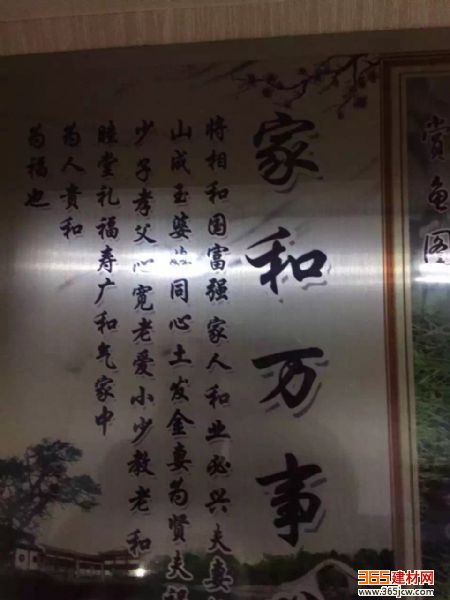 赏鱼图
家和万事
将相和国富强家人和业必兴夫妻
山成玉婆媳同心土发金妻为贤夫
少子孝父心宽老爱小少教老和
睦堂礼福寿广和气家中
为人贵和
为福也
365建材网
www.365jcw.com